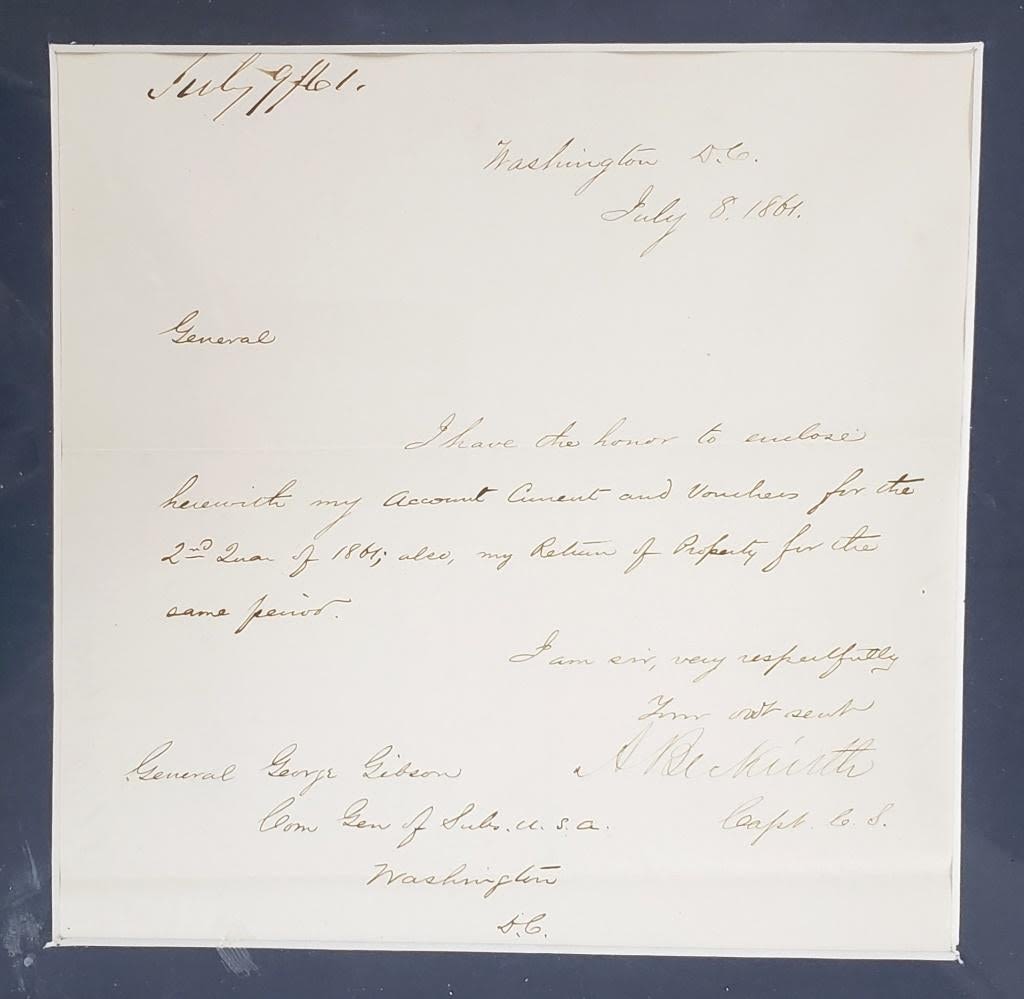 July 9/61.
Washington D.C.
July 8. 1861.
General
I have the honor to enclose
herewith my Account Current and Vouchers for the
2nd Quar of 1861; also, my Return of Property for the
same period.
I am sir, very respectfully
Your obdt servt
A Beckwith
General George Gibson
Capt. C. S.
Com Gen of Subs. U.S.A.
Washington
D.C.